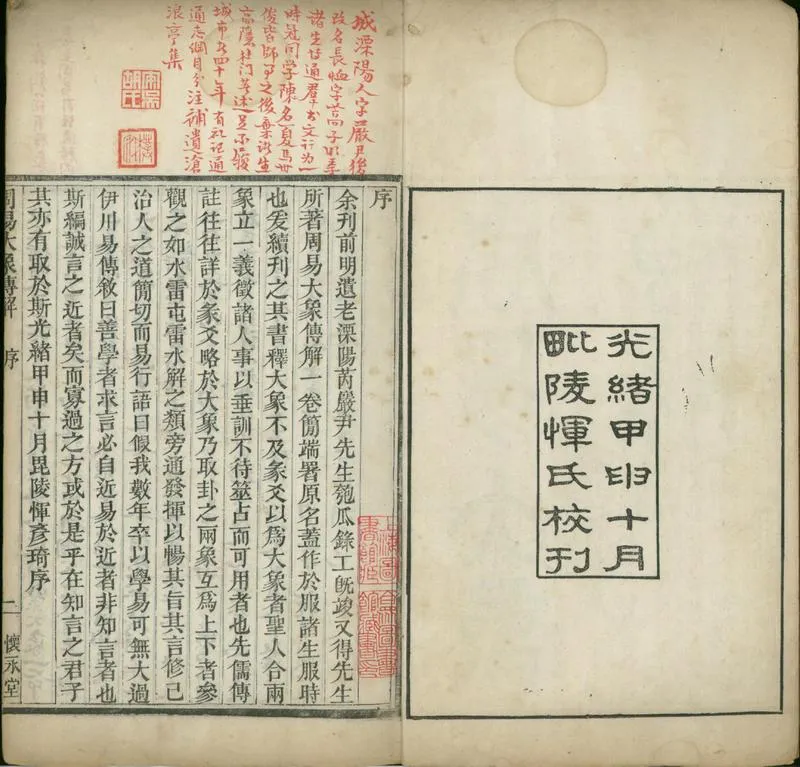 光緒甲申十月
毗陵惲氏校刊
城溧陽人字嚴尹後
改名長恤字蒿子明季
諸生博通羣書文行为一
時冠同学陳名夏馬世
俊皆師事之後棄諸生
高隱杜门著述足不履
城市者四十年有礼記通
通志綱目分注補遺滄
浪亭集
序
余刊前明遺老溧陽芮嚴尹先生匏瓜錄工旣竣又得先生
所著周易大象傳解一卷簡端署原名蓋作於服諸生服時
也爰續刊之其書釋大象不及彖爻以爲大象者聖人合兩
象立一義徵諸人事以垂訓不待筮占而可用者也先儒傳
註往往詳於彖爻略於大象乃取卦之兩象互爲上下者參
觀之如水雷屯雷水解之類旁通發揮以暢其旨其言修己
治人之道簡切而易行語曰假我數年卒以學易可無大過
伊川易傳敘曰善學者求言必自近易於近者非知言者也
斯編誠言之近者矣而寡過之方或於是乎在知言之君子
其亦有取於斯光緒甲申十月毘陵惲彥琦序
周易大象傳解 序 二 懷永堂